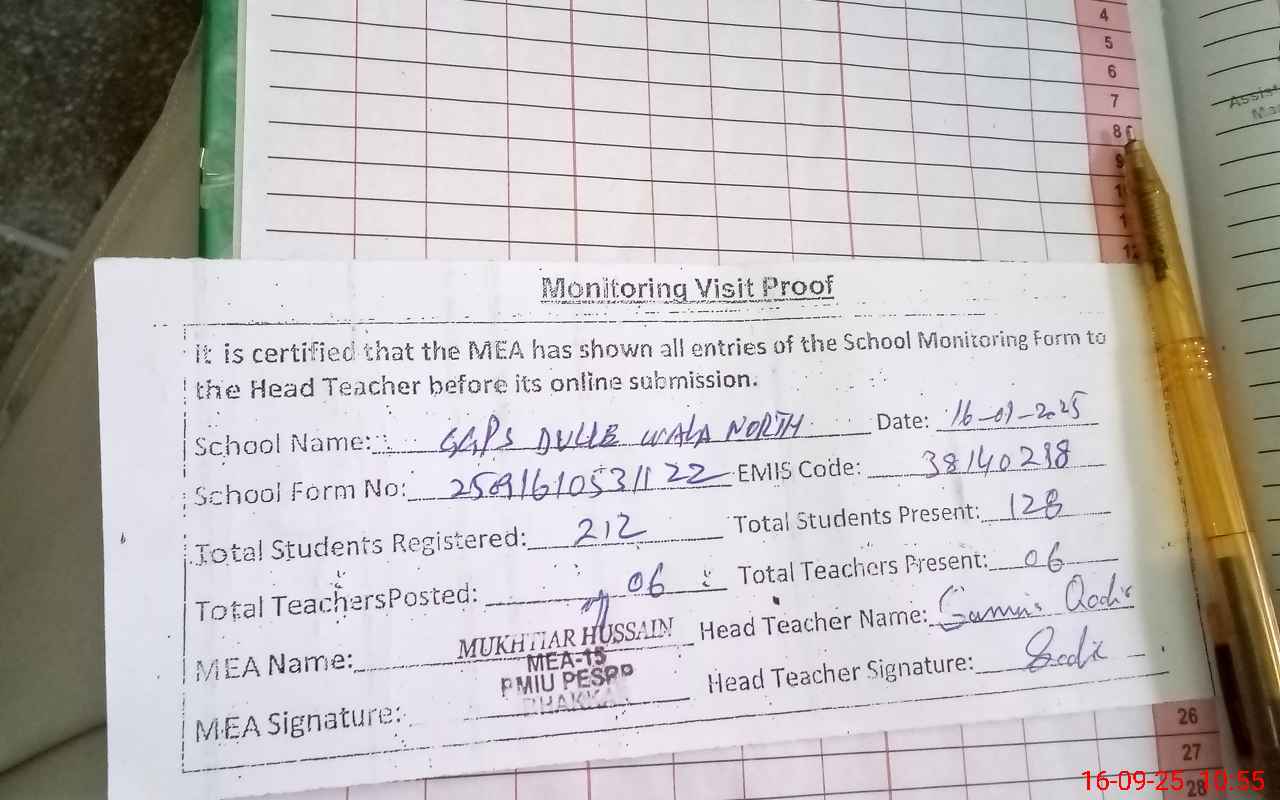 4
5
6
7
8
9
10
12
Assist
Monitoring Visit Proof
It is certified that the MEA has shown all entries of the School Monitoring Form to
the Head Teacher before its online submission.
School Name: GGPS DULLE WALA NORTH Date: 16-09-2025
School Form No: 25091610531122 EMIS Code: 38140298
Total Students Registered: 212 Total Students Present: 128
Total TeachersPosted: 06 Total Teachers Present: 06
MEA Name: MUKHTIAR HUSSAIN Head Teacher Name: Qadir
MEA-15
PMIU PESRP
BHAKKAR
MEA Signature: Head Teacher Signature:
26
27
28
16-09-25 10:55